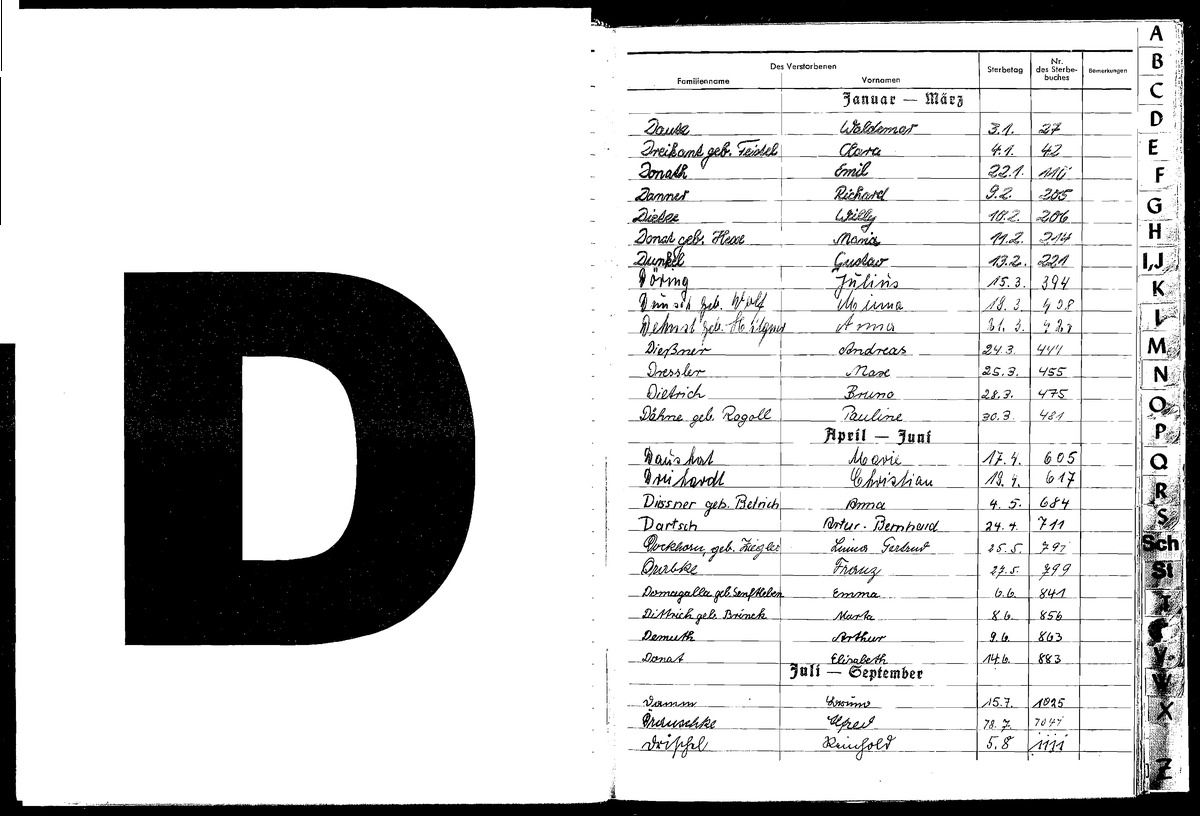 D
Des Verstorbenen
Familienname Vornamen Sterbetag Nr. des Sterbebuches Bemerkungen
Januar — März
Waldemar 3.1. 27
Dreikant geb. Clara 4.1. 42
Donath Emil 22.1.
Danner Richard 9.2. 205
Willy 10.2. 206
Donat geb. Maria 11.2. 214
Dunkel Gustav 13.2. 221
Döring Julius 15.3. 394
geb. Wolf Minna 19.3. 408
geb. Anna
Dießner Andreas 24.3. 444
Dressler Max 25.3. 455
Dietrich Bruno 28.3. 475
Dähne geb. Rogoll Pauline 30.3. 481
April — Juni
Dauskat Marie 17.4. 605
Christian 19.4. 617
Dissner geb. Betrich Anna 4.5. 684
Dartsch Artur-Bernhard 24.4. 711
Dockhorn, geb. Ziegler Gertrud 25.5.
Franz 27.5. 799
Domagalla geb. Senftleben Emma 6.6. 841
Dittrich geb. Brinck Marta 8.6. 856
Demuth Arthur 9.6. 863
Donat Elisabeth 14.6. 883
Juli — September
Damm Bruno 15.7. 1025
Alfred 18.7. 1041
Drischel Reinhold 5.8 1111
A
B
C
D
E
F
G
H
I,J
K
L
M
N
O
P
Q
R
S
Sch
St
T
V
W
X
Z